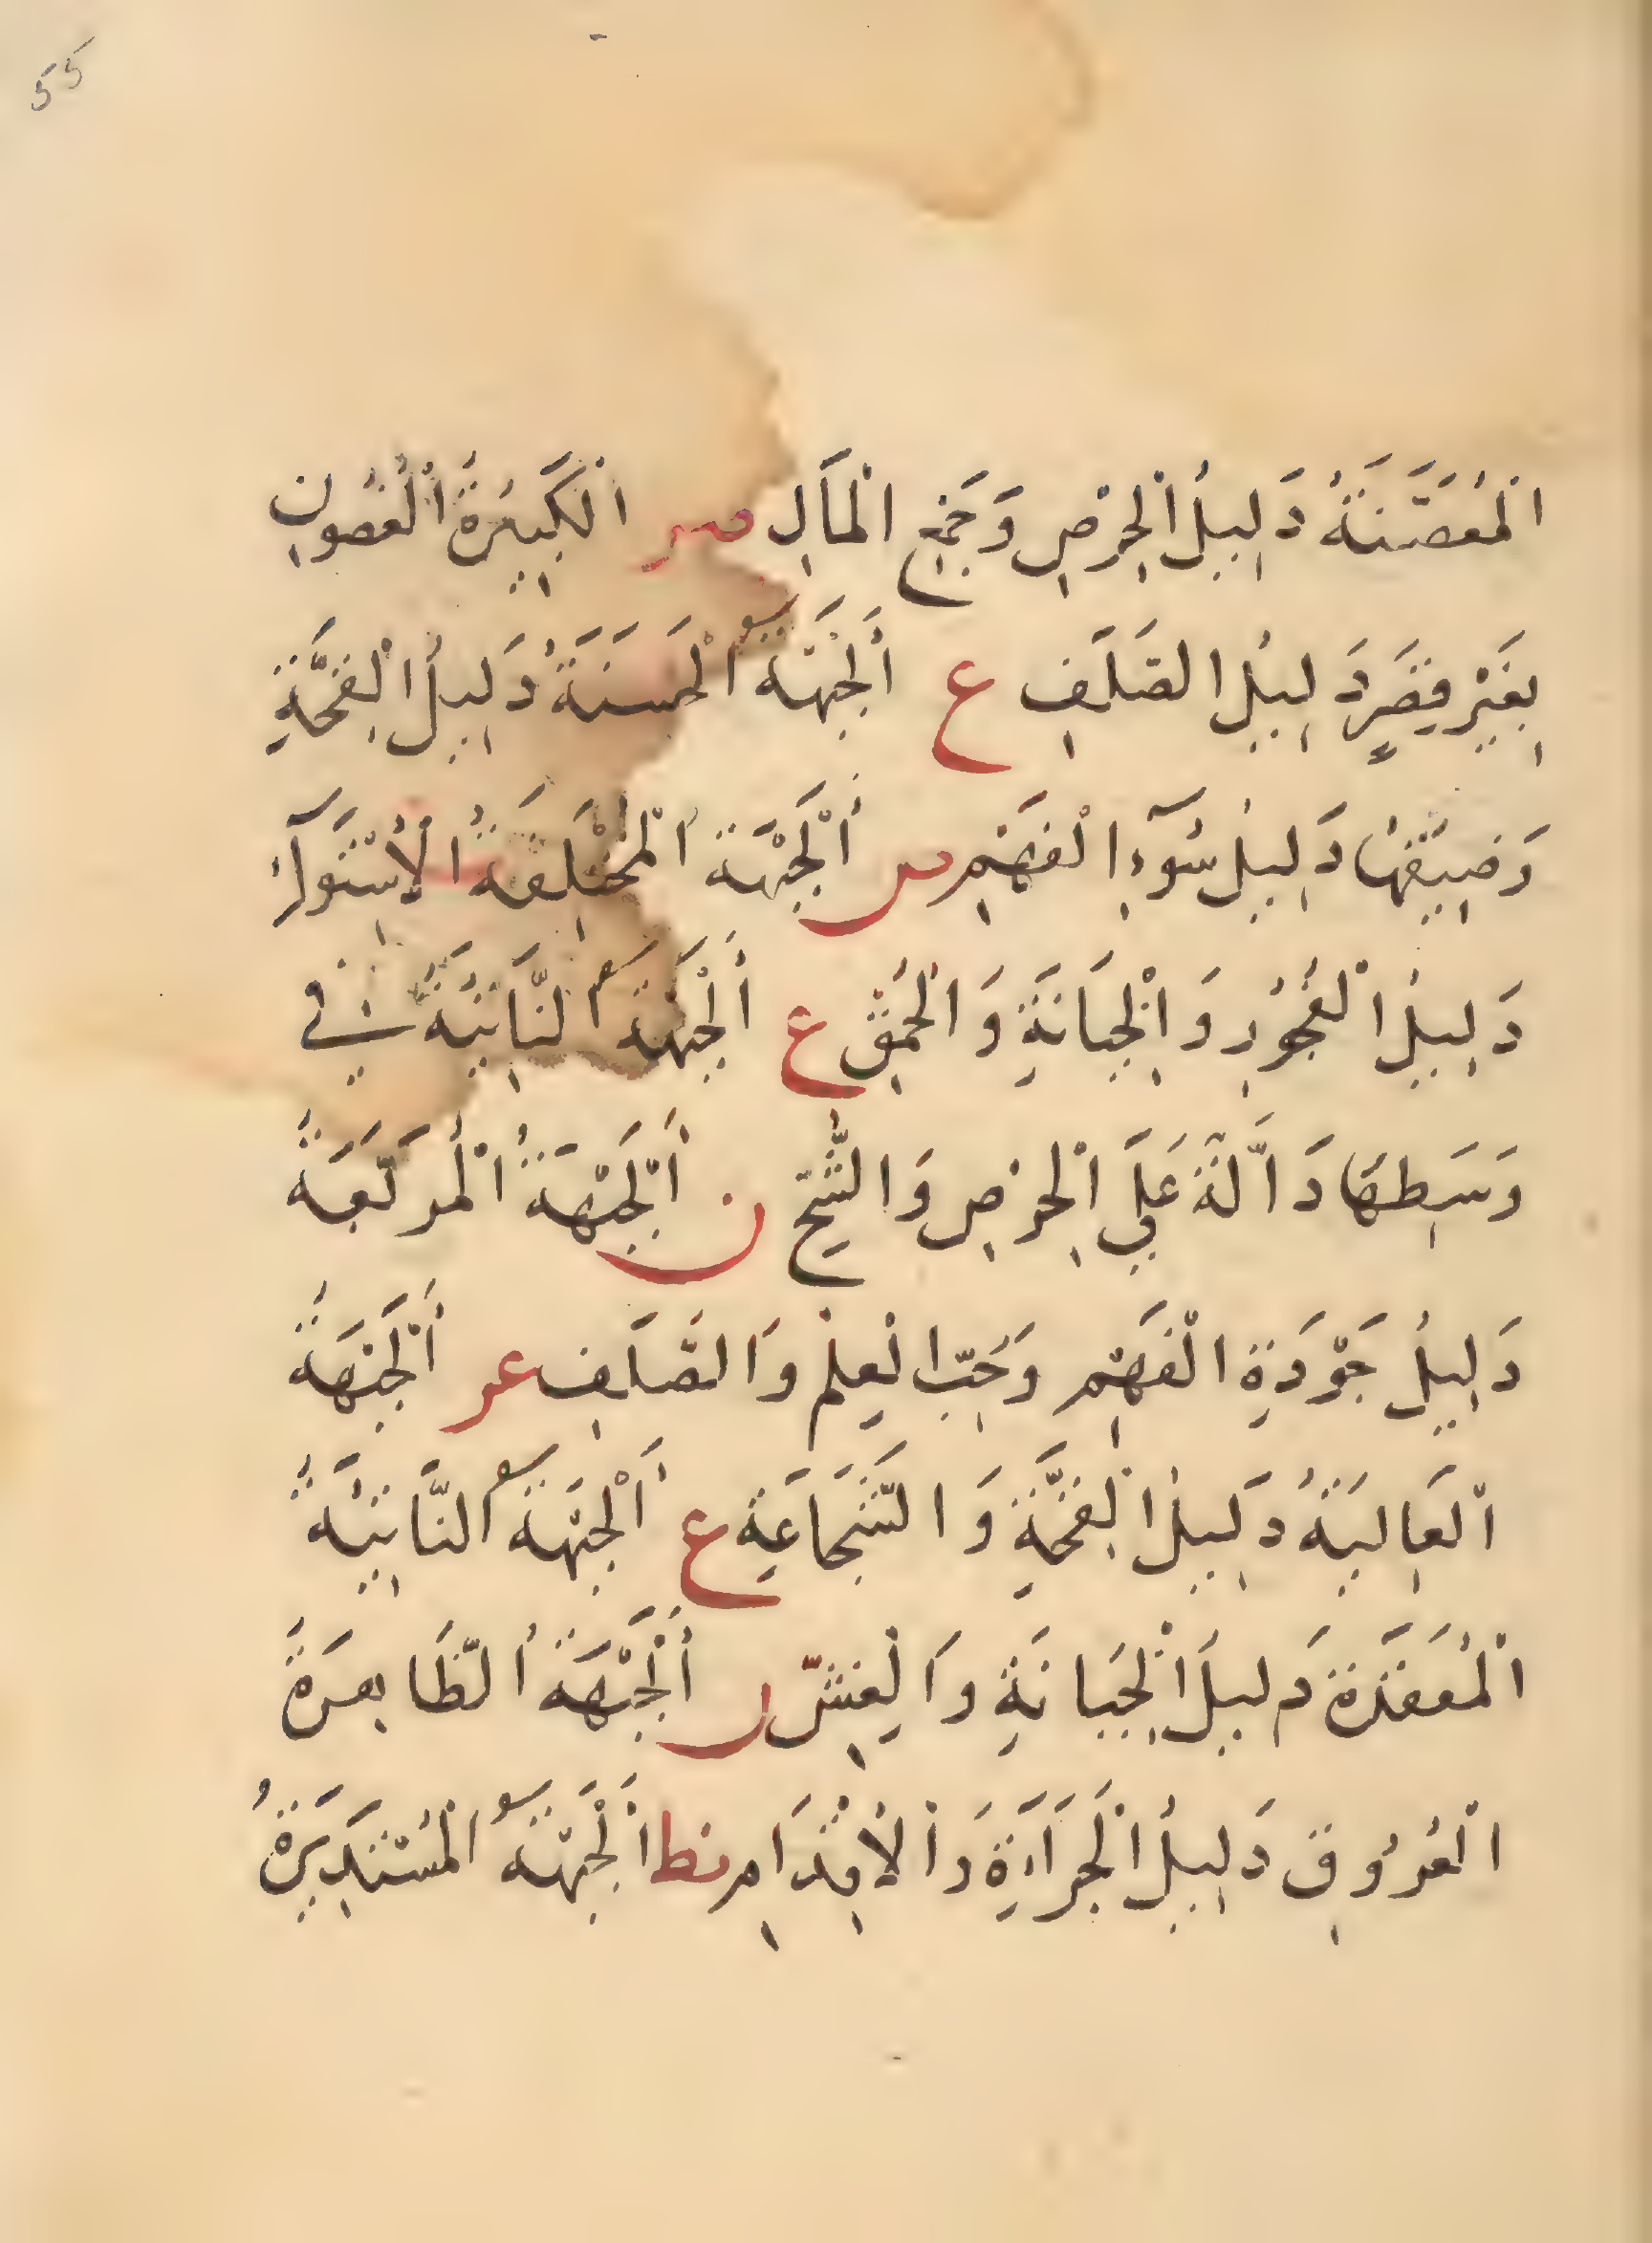 55
الْمُغَضَّنَةُ دَلِيلُ الْحِرْصِ وَجَمْعِ الْمَالِ صر الْكَبِيرَةُ الْغُضُونِ
بِغَيْرِ قِصَرٍ دَلِيلُ الصَّلَفِ ع أَلْجَبْهَةُ الْحَسَنَةُ دَلِيلُ الْقِحَّةِ
وَضِيقُهَا دَلِيلُ سُوءِ الْفَهْمِ س أَلْجَبْهَةُ الْمُخْتَلِفَةُ الْأِسْتِوَآءِ
دَلِيلُ الْفُجُورِ وَالْجَبَانَةِ وَالْحُمْقِ ع أَلْجَبْهَةُ النَّاتِيَةُ فِي
وَسَطِهَا دَالَّةٌ عَلَي الْحِرْصِ وَالشُّحِّ ن أَلْجَبْهَةُ الْمُرَبَّعَةُ
دَلِيلُ جَوْدَةِ الْفَهْمِ وَحُبِّ الْعِلْمِ وَالصَّلَفِ عر أَلْجَبْهَةُ
الْعَالِيَةُ دَلِيلُ الْقِحَّةِ وَالشَّجَاعَةِ ع أَلْجَبْهَةُ النَّاتِيَةُ
الْمُعَقَّدَةُ دَلِيلُ الْجَبَانَةِ وَالْغِشِّ ر أَلْجَبْهَةُ الظَّاهِرَةُ
الْعُرُوقِ دَلِيلُ الْجَرَاءَةِ وَالْأِقْدَامِ نط أَلْجَبْهَةُ الْمُسْتَدِيرَةُ